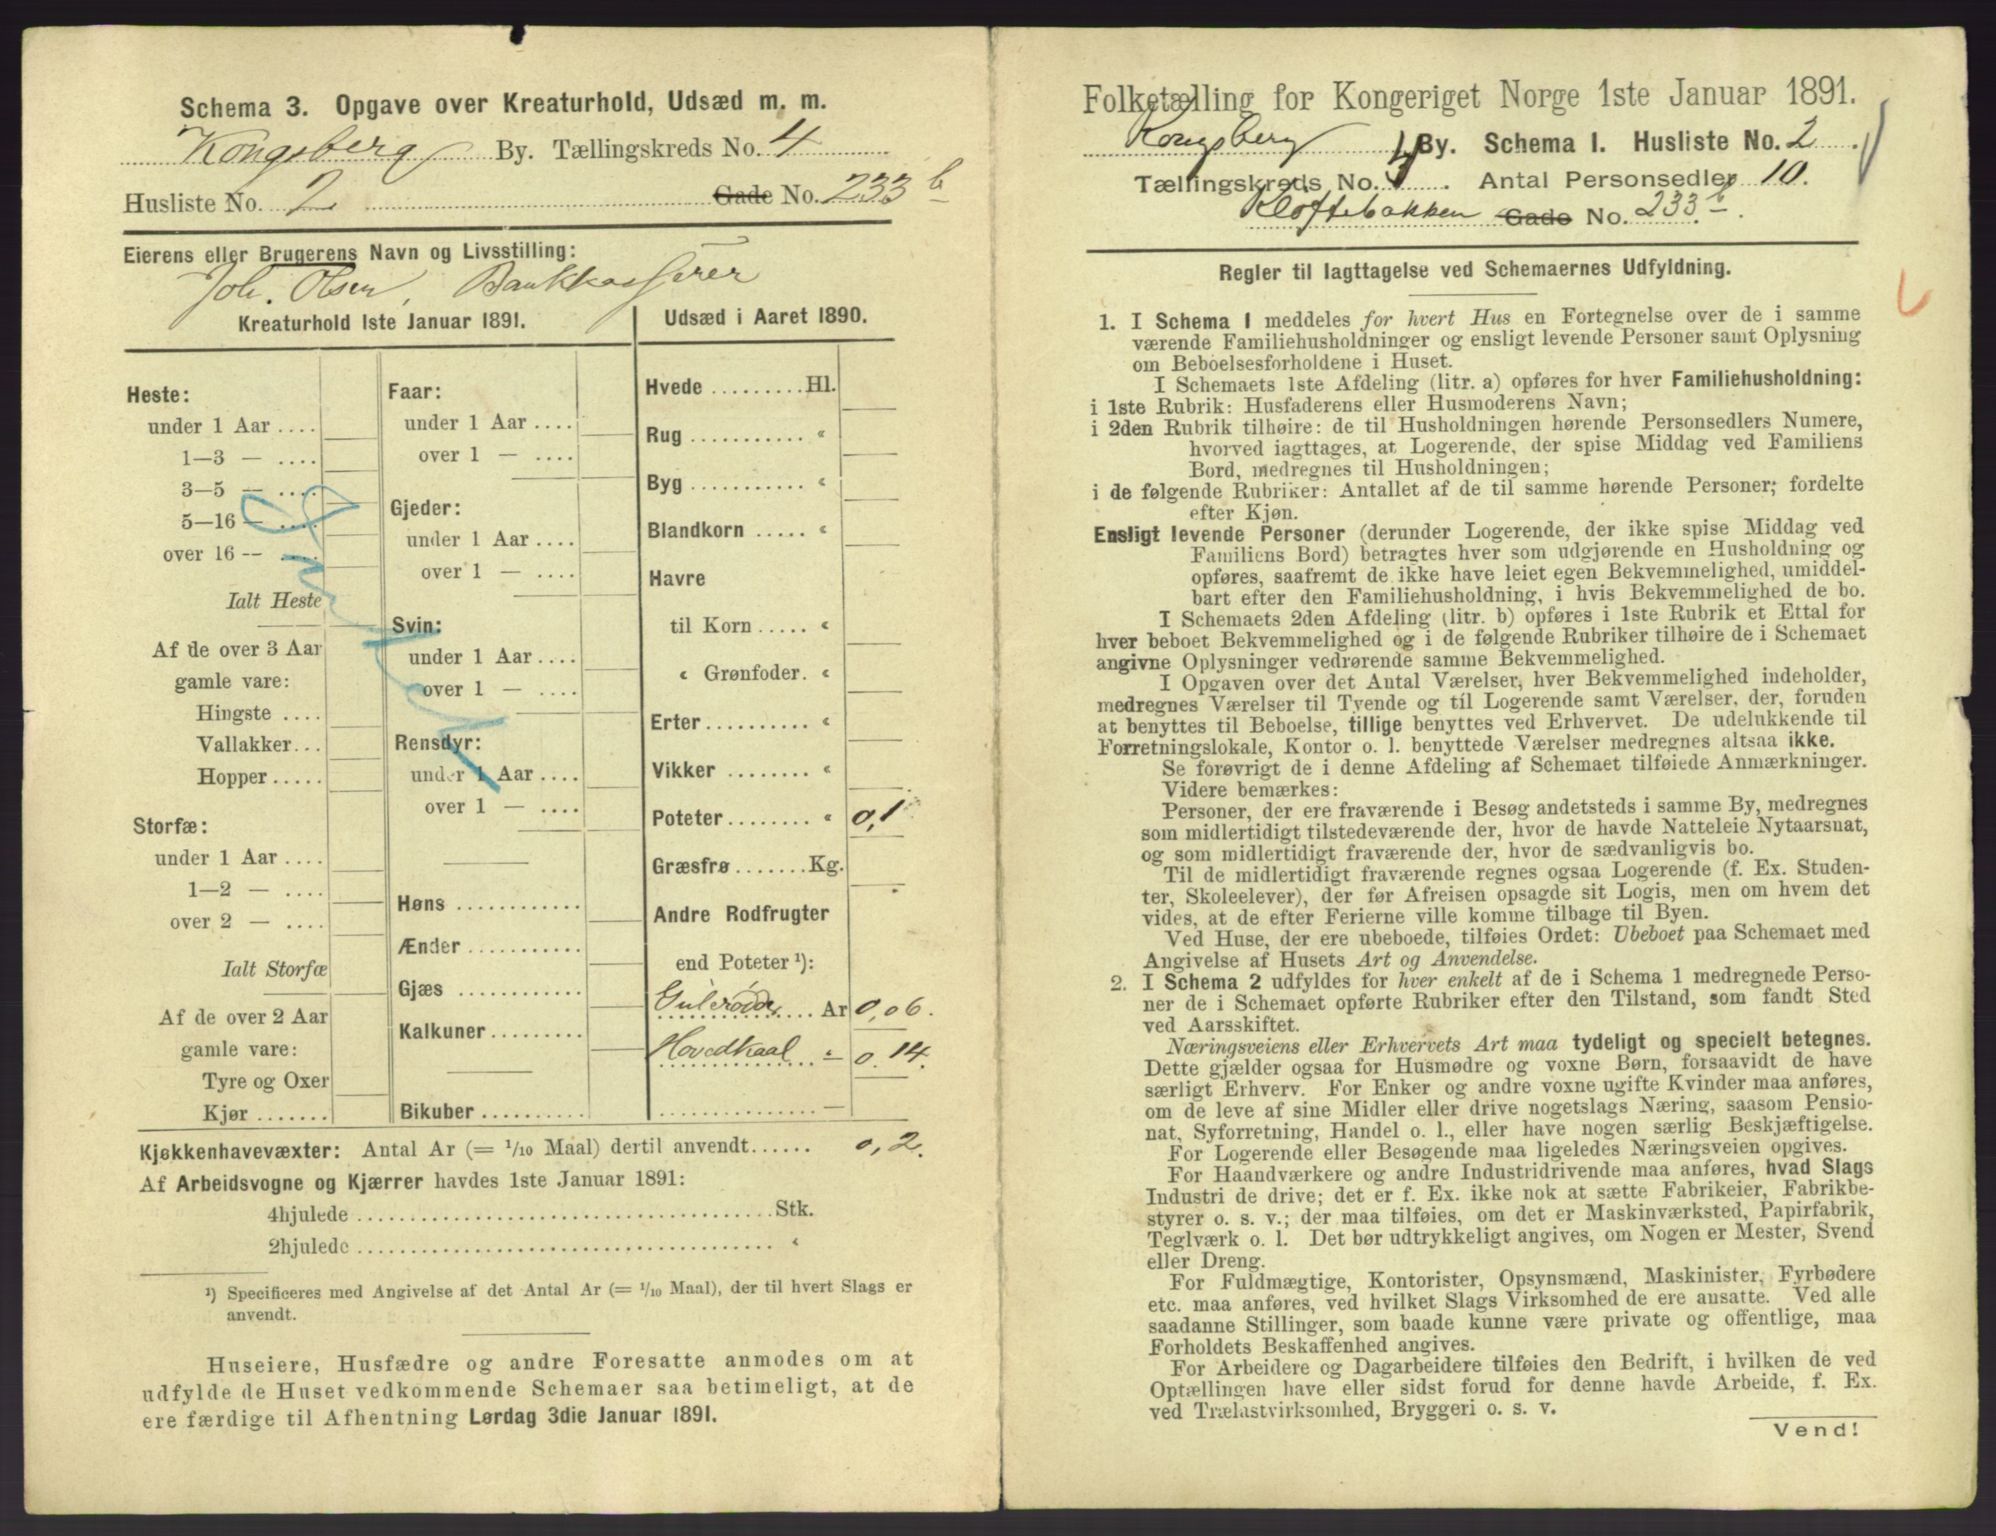 Schema 3. Opgave over Kreaturhold, Udsæd m. m.
Kongsberg By. Tællingskreds No. 4
Husliste No. 2 Gade No. 233 b
Eierens eller Brugerens Navn og Livsstilling:
Joh. Olsen, Bankkasserer
Kreaturhold 1ste Januar 1891.
Heste:
under 1 Aar ....
1—3 — ....
3—5 — ....
5—16 — ....
over 16 — ....
Ialt Heste
Af de over 3 Aar
gamle vare:
Hingste ....
Vallakker...
Hopper .....
Storfæ:
under 1 Aar ....
1—2 — ....
over 2 — ....
Ialt Storfæ
Af de over 2 Aar
gamle vare:
Tyre og Oxer
Kjør .......
Faar:
under 1 Aar ....
over 1 — ....
Gjeder:
under 1 Aar ....
over 1 — ....
Svin:
under 1 Aar ....
over 1 — ....
Rensdyr:
under 1 Aar ....
over 1 — ....
Høns ............
Ænder ...........
Gjæs ............
Kalkuner .........
Bikuber ..........
Udsæd i Aaret 1890.
Hvede ......... Hl.
Rug ........... "
Byg ........... "
Blandkorn ..... "
Havre
til Korn ..... "
" Grønfoder. "
Erter.......... "
Vikker ........ "
Poteter ........ " 0,1
Græsfrø ....... Kg.
Andre Rodfrugter
end Poteter ¹):
Gulerødder Ar 0,06.
Hovedkaal " — 0.14.
............... —
Kjøkkenhavevæxter: Antal Ar (= 1/10 Maal) dertil anvendt...... 0,2.
Af Arbeidsvogne og Kjærrer havdes 1ste Januar 1891:
4hjulede ........................................ Stk.
2hjulede ........................................ "
¹) Specificeres med Angivelse af det Antal Ar (= 1/10 Maal), der til hvert Slags er
anvendt.
Huseiere, Husfædre og andre Foresatte anmodes om at
udfylde de Huset vedkommende Schemaer saa betimeligt, at de
ere færdige til Afhentning Lørdag 3die Januar 1891.
Folketælling for Kongeriget Norge 1ste Januar 1891.
Kongsberg By. Schema 1. Husliste No. 2
Tællingskreds No. 4. Antal Personsedler 10.
Kløftebakken Gade No. 233 b.
Regler til Iagttagelse ved Schemaernes Udfyldning.
1. I Schema 1 meddeles for hvert Hus en Fortegnelse over de i samme
værende Familiehusholdninger og ensligt levende Personer samt Oplysning
om Beboelsesforholdene i Huset.
I Schemaets 1ste Afdeling (litr. a) opføres for hver Familiehusholdning:
i 1ste Rubrik: Husfaderens eller Husmoderens Navn;
i 2den Rubrik tilhøire: de til Husholdningen hørende Personsedlers Numere,
hvorved iagttages, at Logerende, der spise Middag ved Familiens
Bord, medregnes til Husholdningen;
i de følgende Rubriker: Antallet af de til samme hørende Personer, fordelte
efter Kjøn.
Ensligt levende Personer (derunder Logerende, der ikke spise Middag ved
Familiens Bord) betragtes hver som udgjørende en Husholdning og
opføres, saafremt de ikke have leiet egen Bekvemmelighed, umiddel-
bart efter den Familiehusholdning, i hvis Bekvemmelighed de bo.
I Schemaets 2den Afdeling (litr. b) opføres i 1ste Rubrik et Ettal for
hver beboet Bekvemmelighed og i de følgende Rubriker tilhøire de i Schemaet
angivne Oplysninger vedrørende samme Bekvemmelighed.
I Opgaven over det Antal Værelser, hver Bekvemmelighed indeholder,
medregnes Værelser til Tyende og til Logerende samt Værelser, der, foruden
at benyttes til Beboelse, tillige benyttes ved Erhvervet. De udelukkende til
Forretningslokale, Kontor o. l. benyttede Værelser medregnes altsaa ikke.
Se forøvrigt de i denne Afdeling af Schemaet tilføiede Anmærkninger.
Videre bemærkes:
Personer, der ere fraværende i Besøg andetsteds i samme By, medregnes
som midlertidigt tilstedeværende der, hvor de havde Natteleie Nytaarsnat,
og som midlertidigt fraværende der, hvor de sædvanligvis bo.
Til de midlertidigt fraværende regnes ogsaa Logerende (f. Ex. Studen-
ter, Skoleelever), der før Afreisen opsagde sit Logis, men om hvem det
vides, at de efter Ferierne ville komme tilbage til Byen.
Ved Huse, der ere ubeboede, tilføies Ordet: Ubeboet paa Schemaet med
Angivelse af Husets Art og Anvendelse.
2. I Schema 2 udfyldes for hver enkelt af de i Schema 1 medregnede Perso-
ner de i Schemaet opførte Rubriker efter den Tilstand, som fandt Sted
ved Aarsskiftet.
Næringsveiens eller Erhvervets Art maa tydeligt og specielt betegnes.
Dette gjælder ogsaa for Husmødre og voxne Børn, forsaavidt de have
særligt Erhverv. For Enker og andre voxne ugifte Kvinder maa anføres,
om de leve af sine Midler eller drive nogetslags Næring, saasom Pensio-
nat, Syforretning, Handel o. l., eller have nogen særlig Beskjæftigelse.
For Logerende eller Besøgende maa ligeledes Næringsveien opgives.
For Haandværkere og andre Industridrivende maa anføres, hvad Slags
Industri de drive; det er f. Ex. ikke nok at sætte Fabrikeier, Fabrikbe-
styrer o. s. v.; der maa tilføies, om det er Maskinværksted, Papirfabrik,
Teglværk o. l. Det bør udtrykkeligt angives, om Nogen er Mester, Svend
eller Dreng.
For Fuldmægtige, Kontorister, Opsynsmænd, Maskinister, Fyrbødere
etc. maa anføres, ved hvilket Slags Virksomhed de ere ansatte. Ved alle
saadanne Stillinger, som baade kunne være private og offentlige, maa
Forholdets Beskaffenhed angives.
For Arbeidere og Dagarbeidere tilføies den Bedrift, i hvilken de ved
Optællingen have eller sidst forud for denne havde Arbeide, f. Ex.
ved Trælastvirksomhed, Bryggeri o. s. v.
Vend!